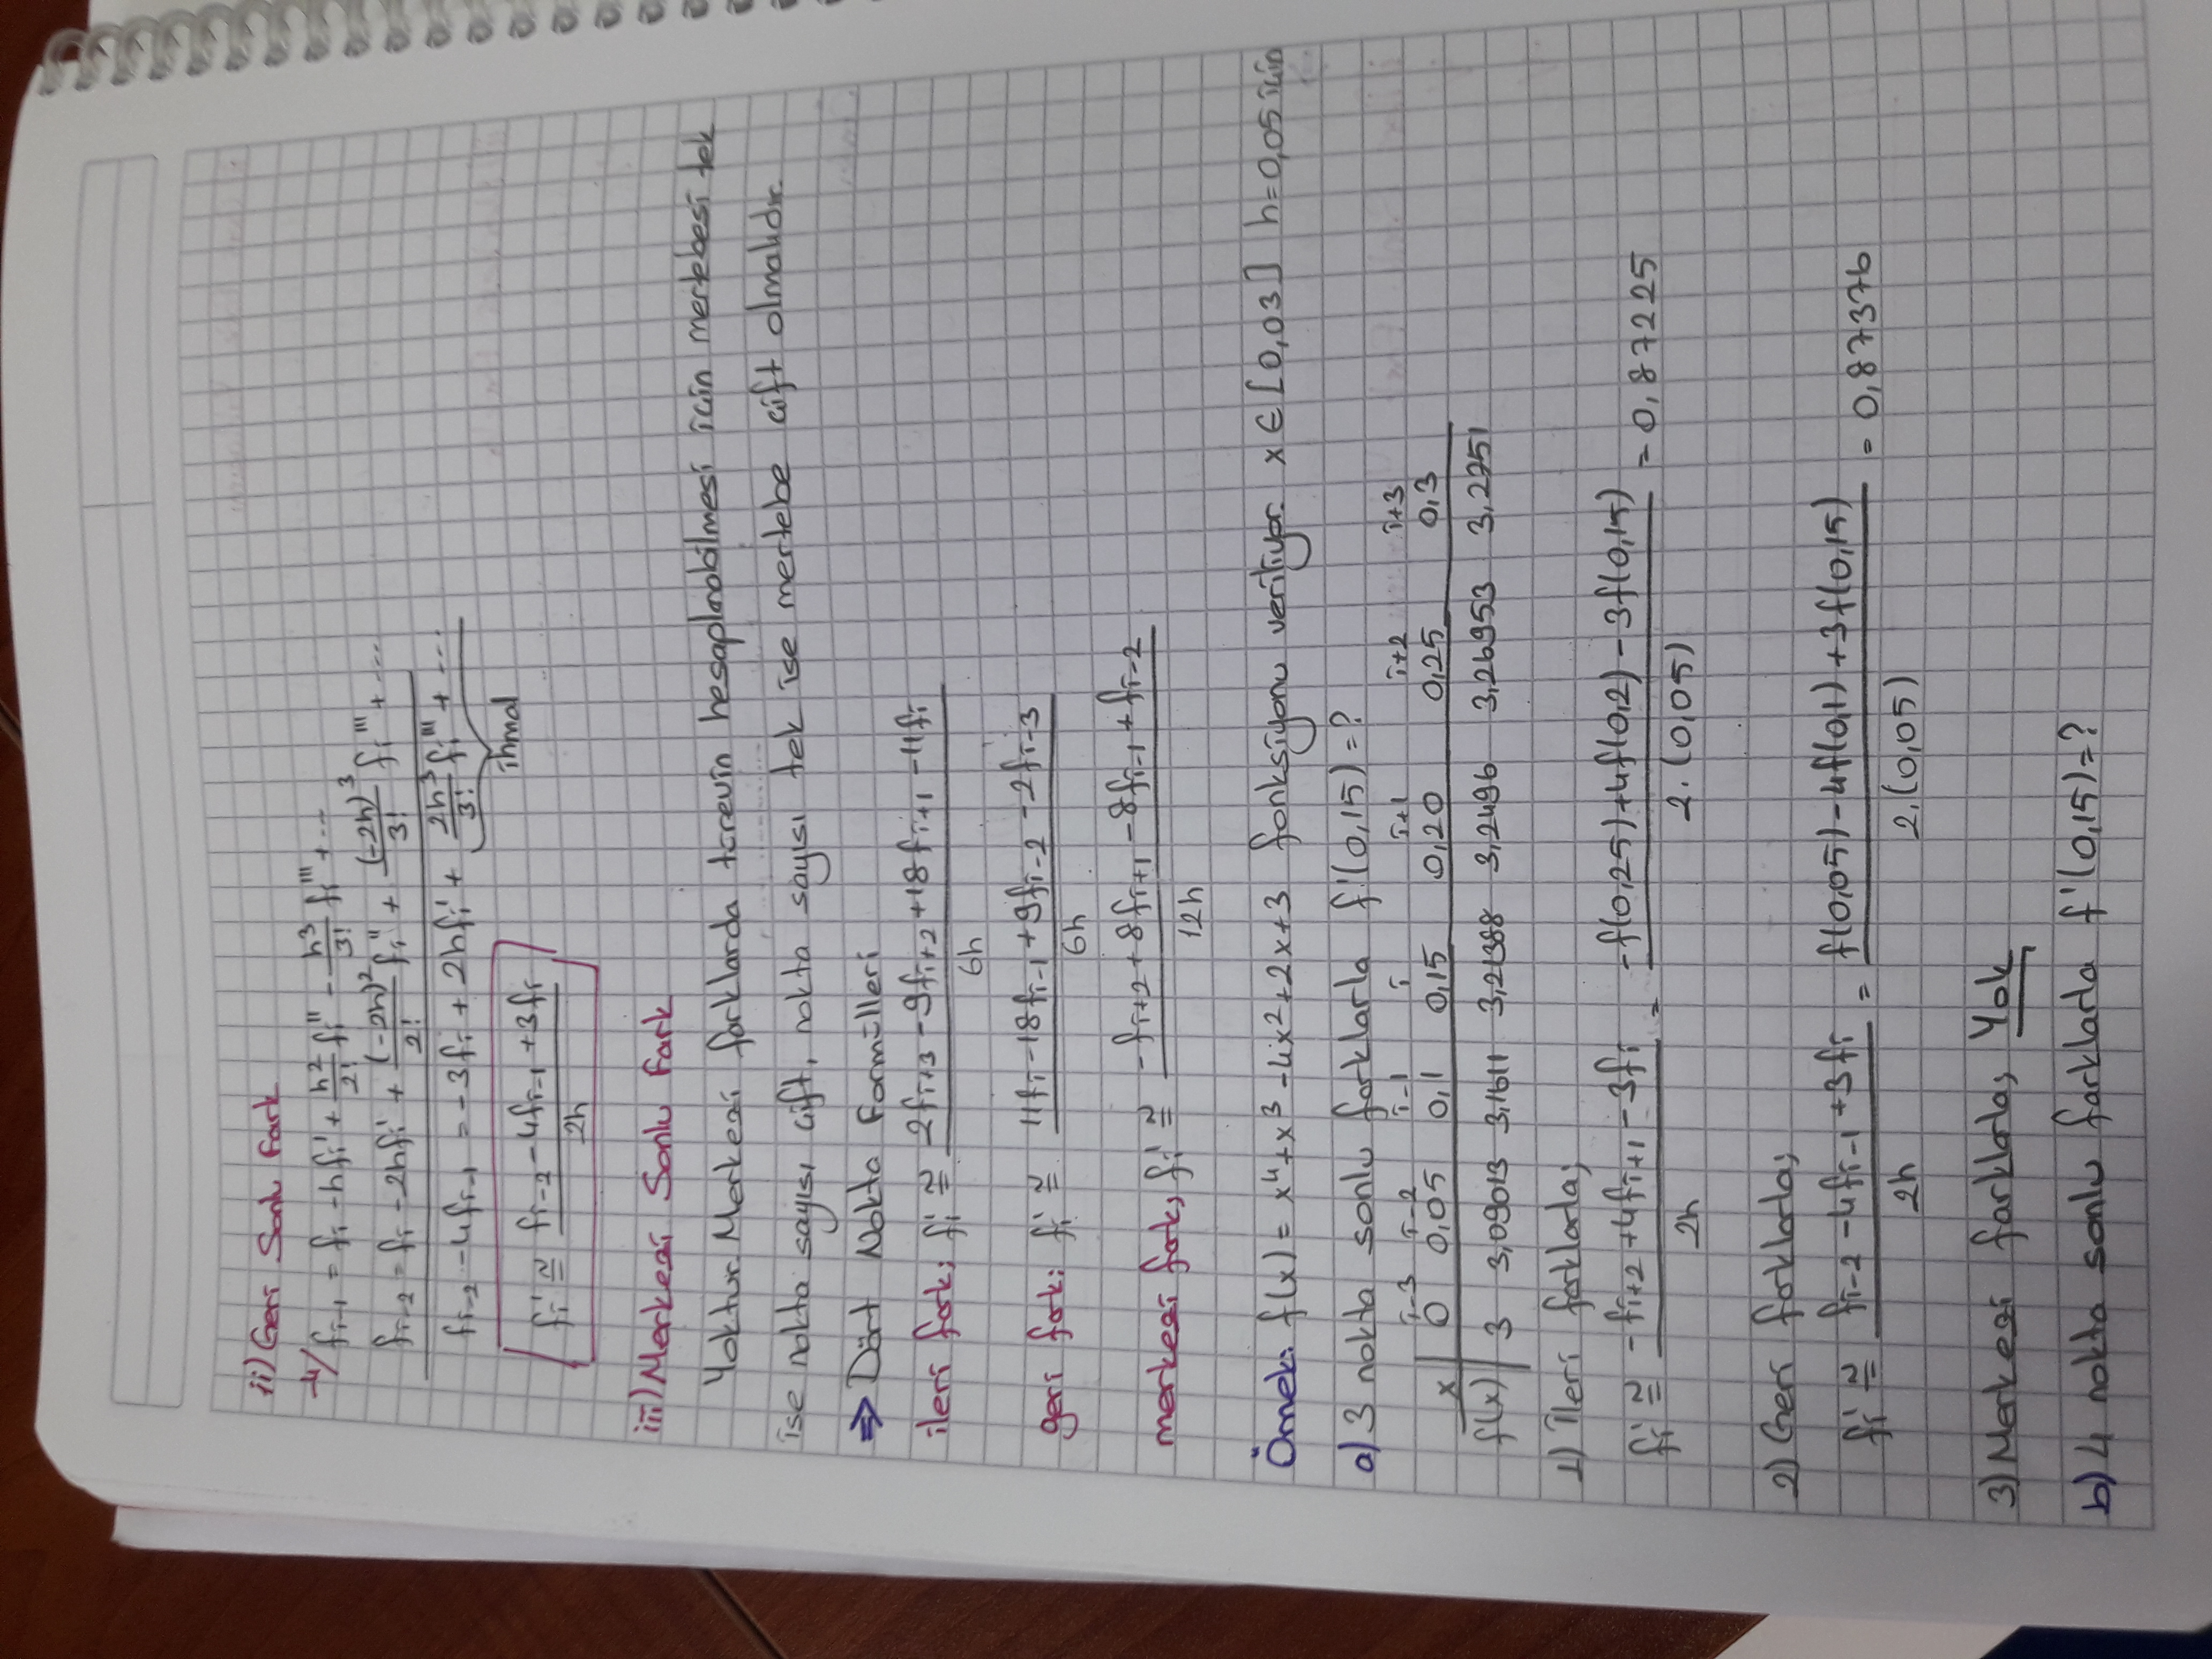 ii) Geri Sonlu Fark
-4/ fᵢ₋₁ = fᵢ - hfᵢ' + h²/2! fᵢ'' - h³/3! fᵢ''' + ...
fᵢ₋₂ = fᵢ - 2hfᵢ' + (-2h)²/2! fᵢ'' + (-2h)³/3! fᵢ''' + ...
fᵢ₋₂ - 4fᵢ₋₁ = -3fᵢ + 2hfᵢ' + 2h³/3! fᵢ''' + ...
ihmal
fᵢ' ≅ (fᵢ₋₂ - 4fᵢ₋₁ + 3fᵢ)/2h
iii) Merkezi Sonlu Fark
Yoktur. Merkezi farklarda türevin hesaplanabilmesi için mertebesi tek
ise nokta sayısı çift, nokta sayısı tek ise mertebe çift olmalıdır.
⇒ Dört Nokta Formülleri
ileri fark; fᵢ' ≅ (2fᵢ₊₃ - 9fᵢ₊₂ + 18fᵢ₊₁ - 11fᵢ)/6h
geri fark: fᵢ' ≅ (11fᵢ - 18fᵢ₋₁ + 9fᵢ₋₂ - 2fᵢ₋₃)/6h
merkezi fark; fᵢ' ≅ (-fᵢ₊₂ + 8fᵢ₊₁ - 8fᵢ₋₁ + fᵢ₋₂)/12h
Örnek: f(x) = x⁴ + x³ - 4x² + 2x + 3 fonksiyonu veriliyor. x ∈ [0,03] h = 0,05 için
a) 3 nokta sonlu farklarla f'(0,15) = ?
i-3 i-2 i-1 i i+1 i+2 i+3
x | 0 0,05 0,1 0,15 0,20 0,25 0,3
f(x) | 3 3,09013 3,1611 3,21388 3,2496 3,26953 3,2751
1) İleri farklarla;
fᵢ' ≅ (-fᵢ₊₂ + 4fᵢ₊₁ - 3fᵢ)/2h = (-f(0,25) + 4f(0,2) - 3f(0,15))/2.(0,05) = 0,87225
2) Geri farklarla;
fᵢ' ≅ (fᵢ₋₂ - 4fᵢ₋₁ + 3fᵢ)/2h = (f(0,05) - 4f(0,1) + 3f(0,15))/2.(0,05) = 0,87376
3) Merkezi farklarla; Yok
b) 4 nokta sonlu farklarla f'(0,15) = ?